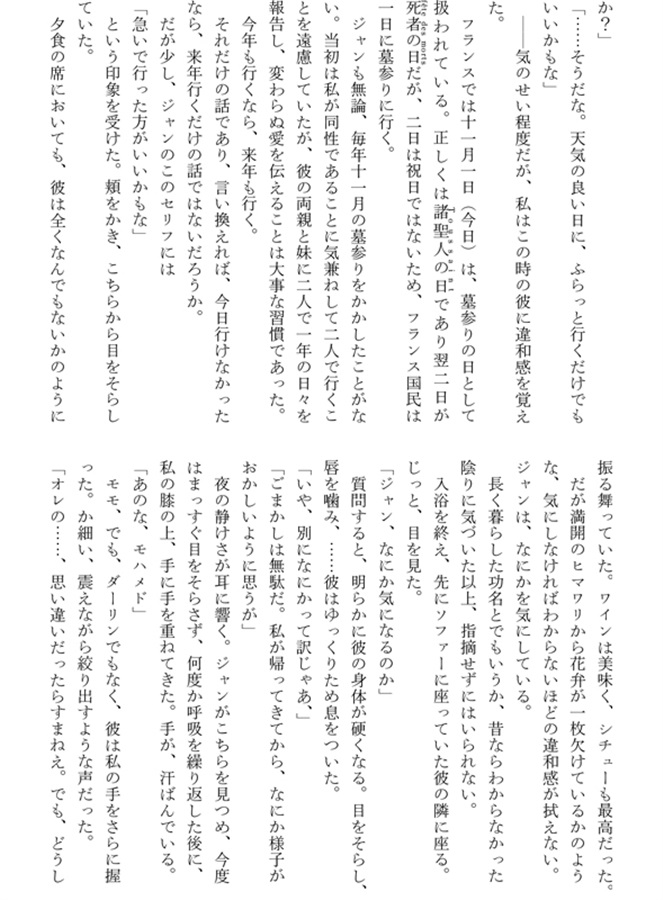 か？」
「……そうだな。天気の良い日に、ふらっと行くだけでも
いいかもな」
――気のせい程度だが、私はこの時の彼に違和感を覚え
た。
フランスでは十一月一日（今日）は、墓参りの日として
扱われている。正しくは諸聖人の日であり翌二日が
Toussaint
死者の日だが、二日は祝日ではないため、フランス国民は
fête des morts
一日に墓参りに行く。
ジャンも無論、毎年十一月の墓参りをかかしたことがな
い。当初は私が同性であることに気兼ねして二人で行くこ
とを遠慮していたが、彼の両親と妹に二人で一年の日々を
報告し、変わらぬ愛を伝えることは大事な習慣であった。
今年も行くなら、来年も行く。
それだけの話であり、言い換えれば、今日行けなかった
なら、来年行くだけの話ではないだろうか。
だが少し、ジャンのこのセリフには
「急いで行った方がいいかもな」
という印象を受けた。頬をかき、こちらから目をそらし
ていた。
夕食の席においても、彼は全くなんでもないかのように
振る舞っていた。ワインは美味く、シチューも最高だった。
だが満開のヒマワリから花弁が一枚欠けているかのよう
な、気にしなければわからないほどの違和感が拭えない。
ジャンは、なにかを気にしている。
長く暮らした功名とでもいうか、昔ならわからなかった
陰りに気づいた以上、指摘せずにはいられない。
入浴を終え、先にソファーに座っていた彼の隣に座る。
じっと、目を見た。
「ジャン、なにか気になるのか」
質問すると、明らかに彼の身体が硬くなる。目をそらし、
唇を噛み、……彼はゆっくりため息をついた。
「いや、別になにかって訳じゃあ、」
「ごまかしは無駄だ。私が帰ってきてから、なにか様子が
おかしいように思うが」
夜の静けさが耳に響く。ジャンがこちらを見つめ、今度
はまっすぐ目をそらさず、何度か呼吸を繰り返した後に、
私の膝の上、手に手を重ねてきた。手が、汗ばんでいる。
「あのな、モハメド」
モモ、でも、ダーリンでもなく、彼は私の手をさらに握
った。か細い、震えながら絞り出すような声だった。
「オレの……、思い違いだったらすまねえ。でも、どうし